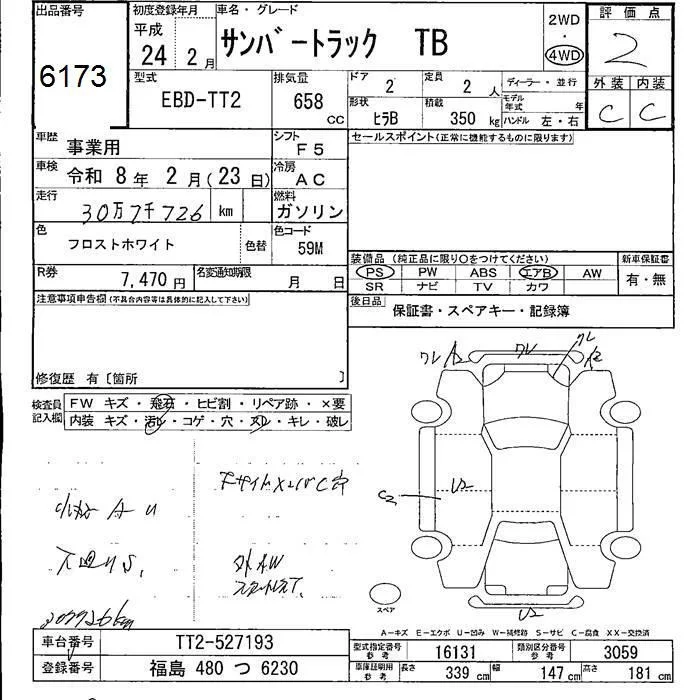 出品番号
6173
初度登録年月
平成
24 2 月
車名・グレード
サンバートラック TB
2WD
・
4WD
評価点
2
外装 内装
C C
型式
EBD-TT2
排気量
658
CC
ドア
2
定員
2 人
ディーラー・並行
形状
ヒラB
積載
350 kg
モデル年式 年
ハンドル 左・右
車歴
事業用
シフト
F5
セールスポイント(正常に機能するものに限ります)
車検
令和 8 年 2 月(23 日)
冷房
AC
走行
30万7千726 km
燃料
ガソリン
色
フロストホワイト
色替
色コード
59M
装備品 (純正品に限り○をつけてください)
新車保証書
PS PW ABS エアB AW
SR ナビ TV カワ
有・無
R券
7,470 円
名変通知期限
月 日
後日品
保証書・スペアキー・記録簿
注意事項申告欄(不具合内容等は具体的に記入して下さい)
修復歴 有〔箇所 〕
検査員記入欄
FW キズ・飛石・ヒビ割・リペア跡・×要
内装 キズ・汚レ・コゲ・穴・スレ・キレ・破レ
ワレ A2 ワレ ワレ A2
C2 U2
小キズ A U
下廻り S
外AW
307726km
U2
スペア
A−キズ E−エクボ U−凹み W−補修跡 S−サビ C−腐食 XX−交換済
車台番号
TT2-527193
型式指定番号
参考
16131
類別区分番号
参考
3059
登録番号
福島 480 つ 6230
車庫証明用
参考
長さ
339 cm
幅
147 cm
高さ
181 cm